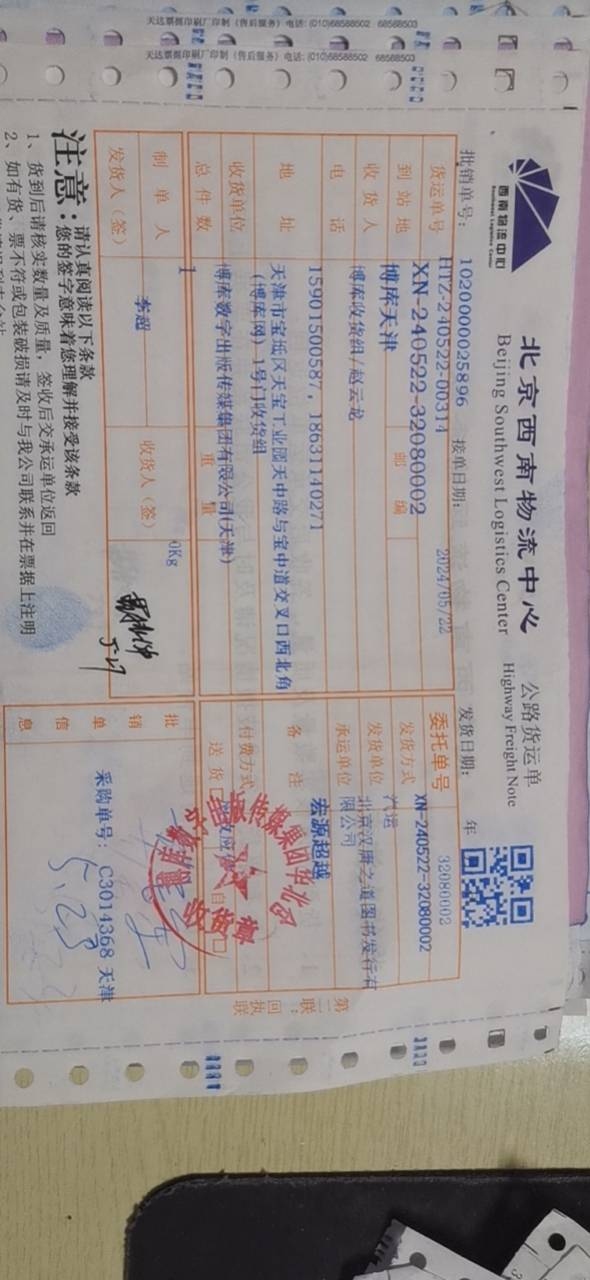 天达票据印刷厂印制（售后服务）电话: (010)68588502 68588503
天达票据印刷厂印制（售后服务）电话: (010)68588502 68588503
西南物流中心
Southwest Logistics Center
北京西南物流中心
Beijing Southwest Logistics Center
公路货运单
Highway Freight Note
批销单号: 1020000025896 接单日期: 2024/05/22 发货日期: 年
货运单号 HTZ-240522-00314
XN-240522-32080002
委托单号 32080002
XN-240522-32080002
到站地 博库天津 邮编
发货方式 汽运
收货人 博库收货组/赵云龙
发货单位 北京汉唐之道图书发行有限公司
电话 15901500587, 18631140271
承运单位 宏源超越
地址 天津市宝坻区天宝工业园天中路与宝中道交叉口西北角
(博库网) 1号门收货组
备注
收货单位 博库数字出版传媒集团有限公司(天津)
付费方式
总件数 1 重量 0Kg
送货 自
收货章
制单人 李超
收货人（签）
5-27
发货人（签）
批销单信息
采购单号: C3014368 天津
5.23
第二联：回执联
注意:
请认真阅读以下条款
您的签字意味着您理解并接受该条款
1、货到后请核实数量及质量，签收后交承运单位返回
2、如有货、票不符或包装破损请及时与我公司联系并在票据上注明